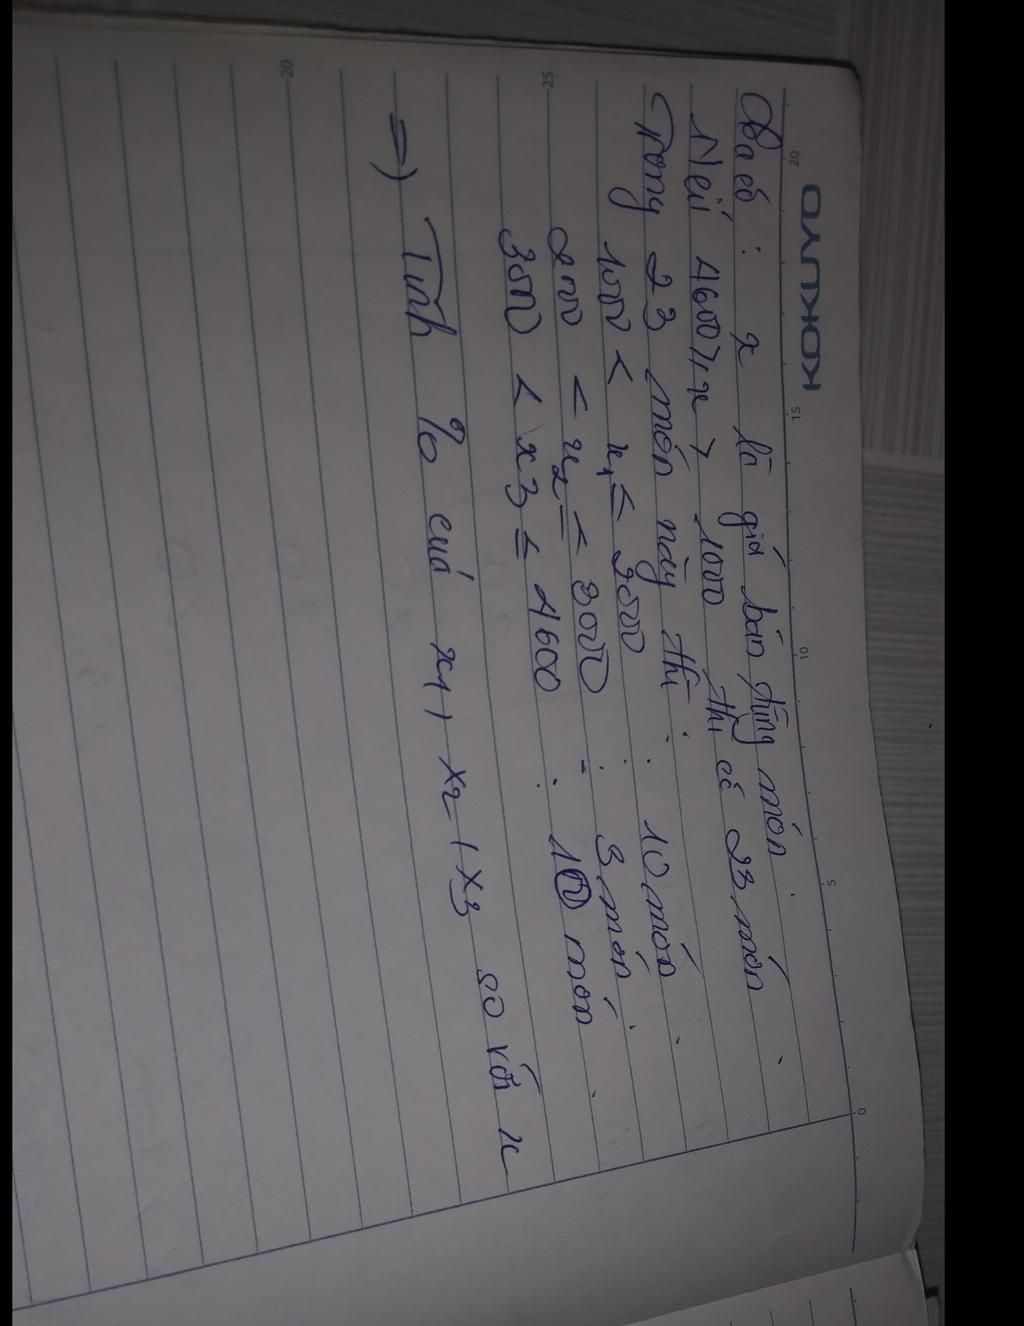 KOKUYO
20 15 10 5 0
Ta có : x là giá bán từng món
Nếu 4600 ≥ x > 1000 thì có 23 món
Trong 23 món này thì :
1000 < x1 ≤ 2000 : 10 món
2000 < x2 ≤ 3000 : 3 món
3000 < x3 ≤ 4600 : 10 món
=) Tính % của x1, x2, x3 so với x
25
20